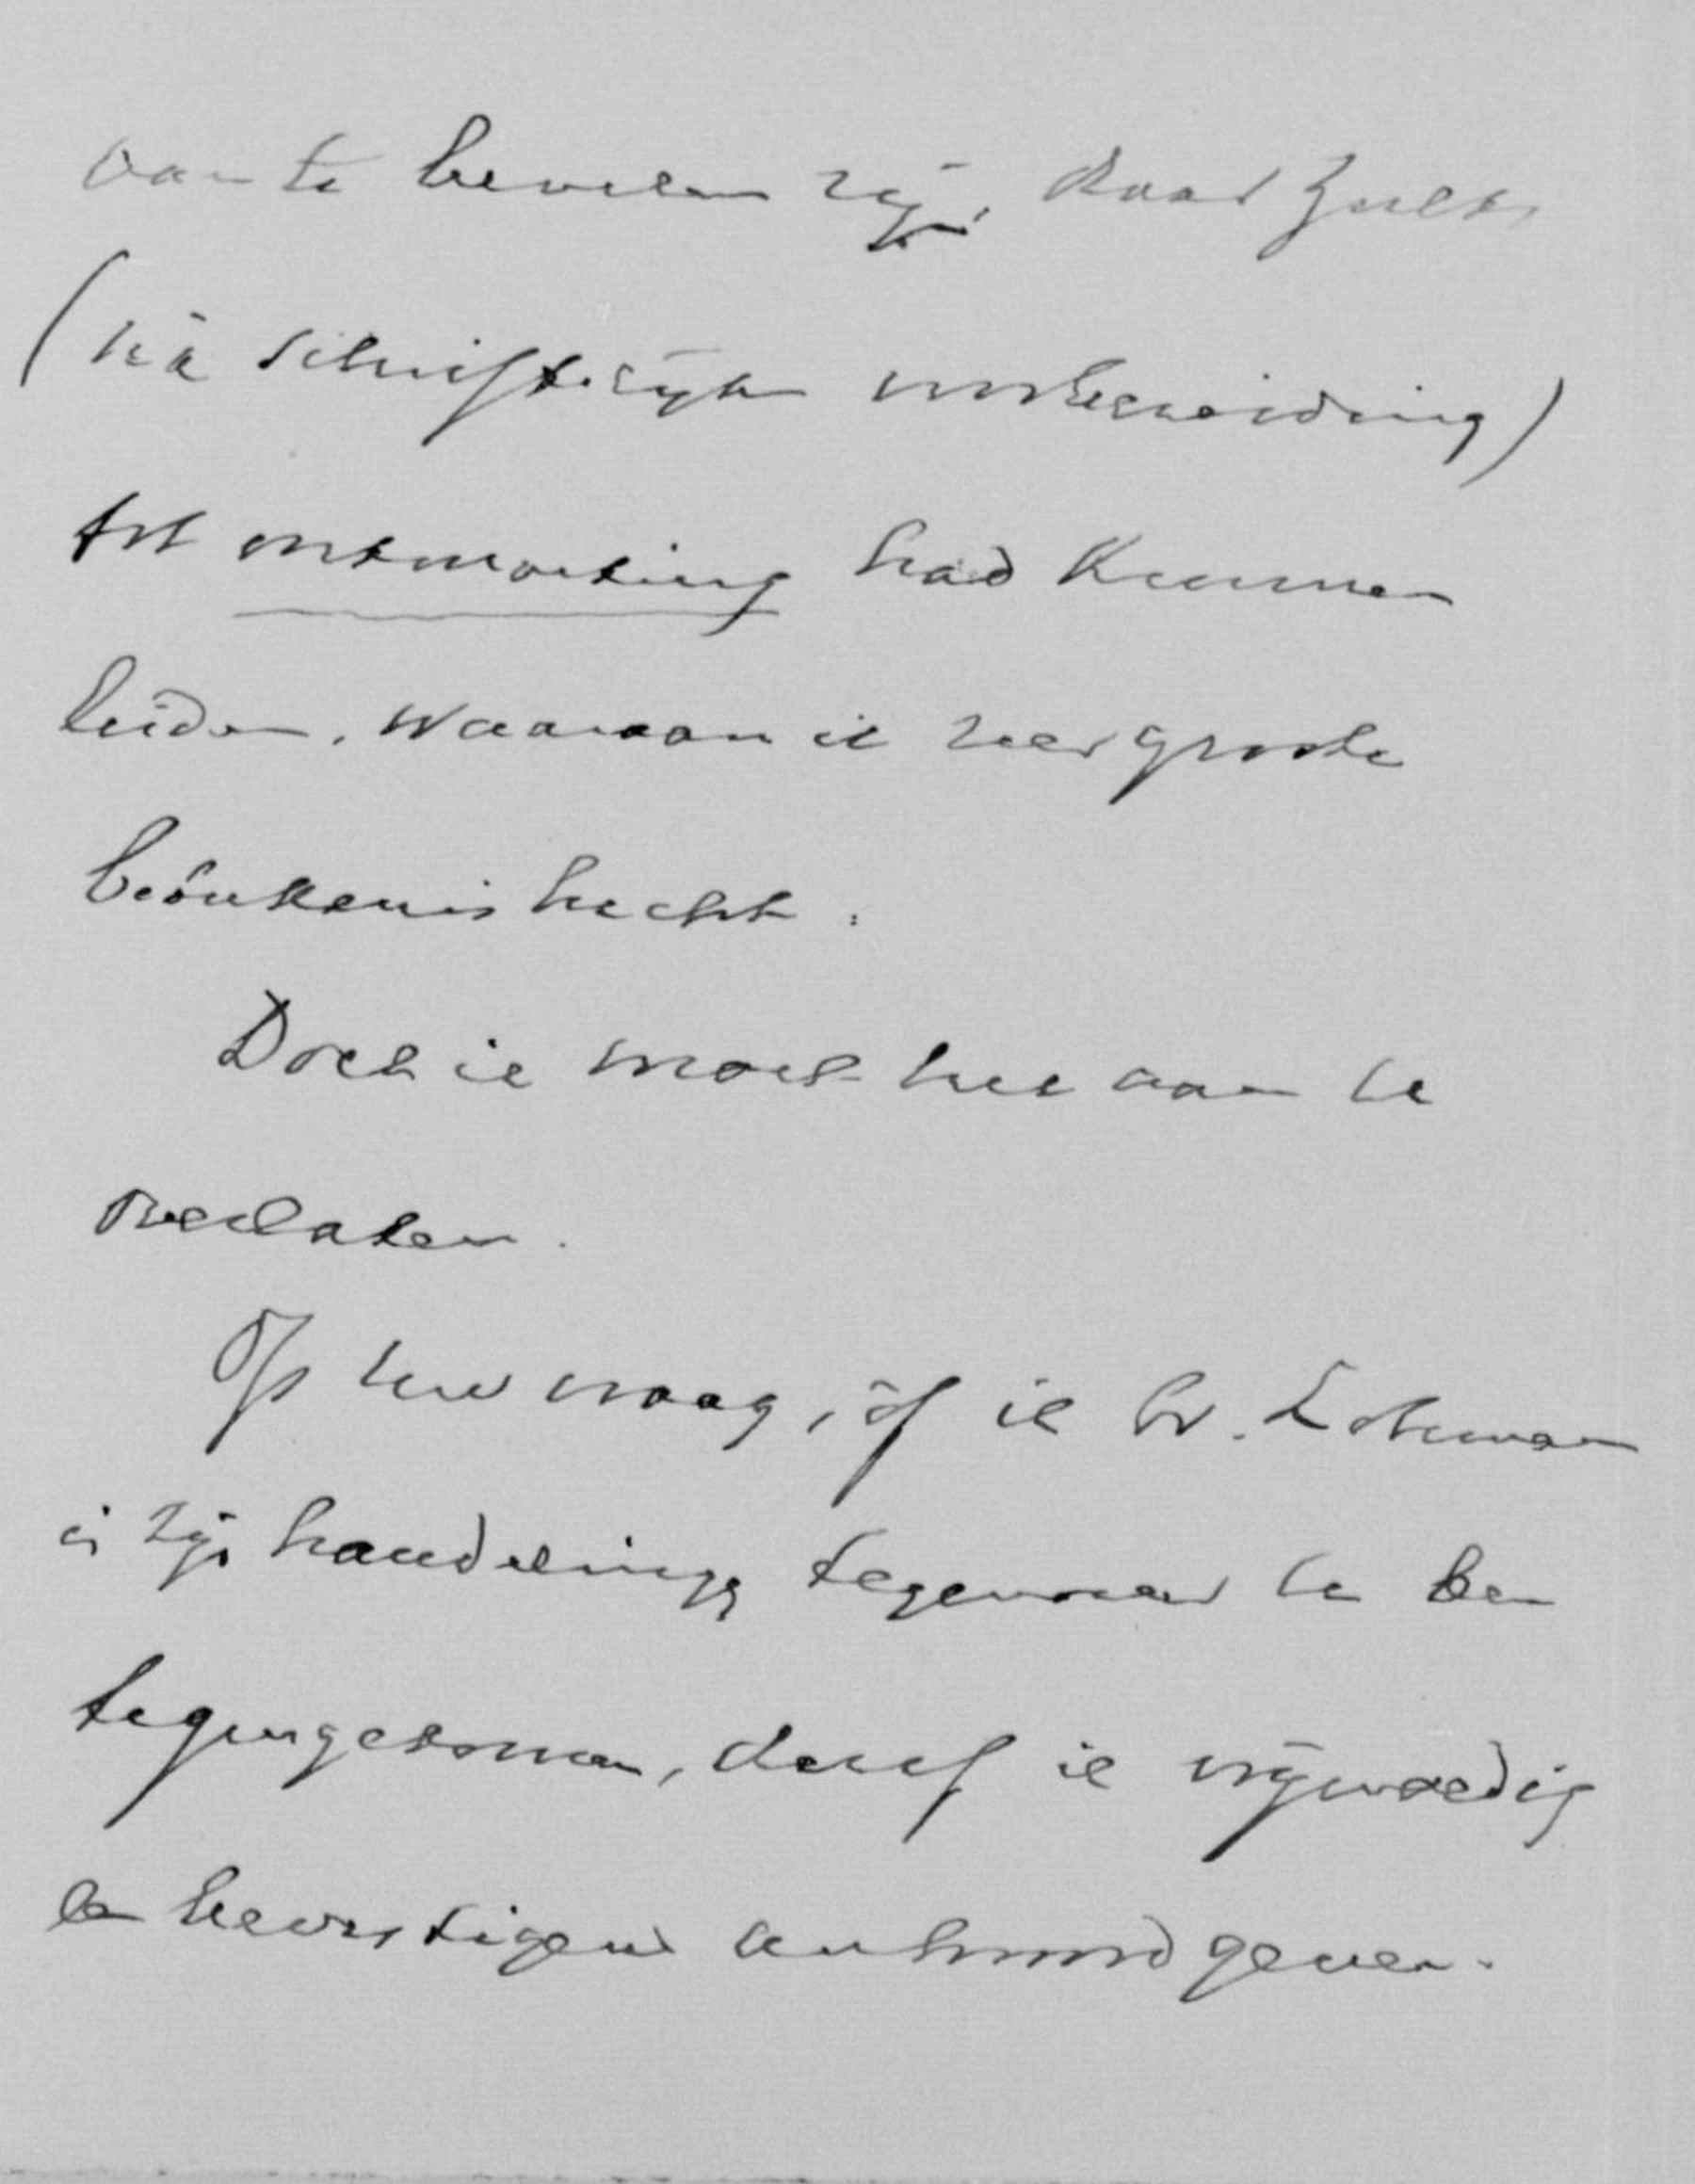 aan te bevelen zijn, daar zulks
(nà schriftelijke voorbereiding)
tot ontmoeting had kunnen
leiden, waaraan ik zeer groote
beteekenis hecht.
Doch ik moet het aan U
overlaten.
Op Uw vraag, òf ik br. Lohman
in zijn handelingen tegenover U ben
tegengekomen, durf ik vrijmoedig
een bevestigend antwoord geven.